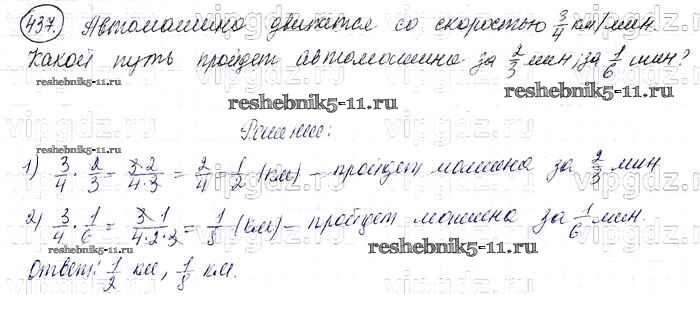 437. Автомашина движется со скоростью 3/4 км/мин.
Какой путь пройдет автомашина за 2/3 мин; за 1/6 мин?
reshebnik5-11.ru reshebnik5-11.ru
Решение:
1) 3/4 · 2/3 = 3·2/4·3 = 2/4 = 1/2 (км) – пройдет машина за 2/3 мин.
2) 3/4 · 1/6 = 3·1/4·2·3 = 1/8 (км) – пройдет машина за 1/6 мин.
reshebnik5-11.ru reshebnik5-11.ru
Ответ: 1/2 км, 1/8 км.